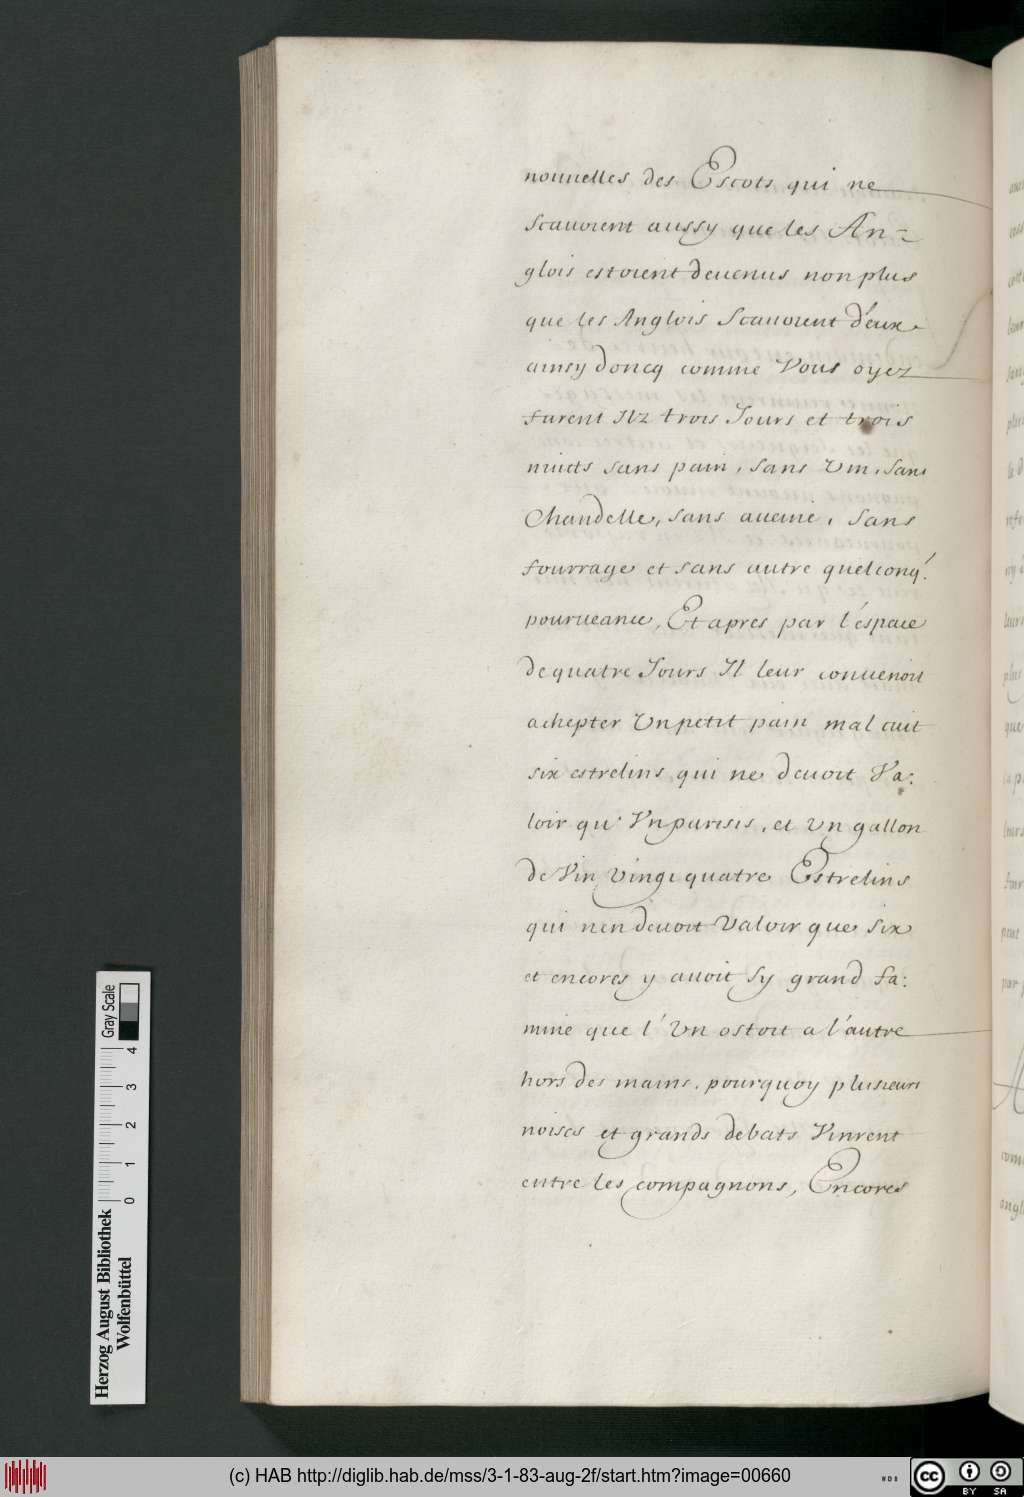 nouuelles des Escots qui ne
scauoient aussy que les An=
glois estoient deuenus non plus
que les Anglois scauoient d'eux
ainsy doncq comme Vous oyez
furent Ilz trois Jours et trois
nuicts sans pain, sans Vin, sans
Chandelle, sans aueine, sans
fourrage et sans autre quelconq!
pourueance, Et apres par l'espace
de quatre Jours Il leur conuenoit
achepter Vn petit pain mal cuit
six estrelins qui ne deuoit Va:
loir qu' Vn parisis, et Vn gallon
de Vin Vingt quatre Estrelins
qui nen deuoit Valoir que six
et encores y auoit sy grand fa:
mine que l' Vn ostoit a l'autre
hors des mains, pourquoy plusieurs
noises et grands debats Vinrent
entre les compagnons, Encores
Herzog August Bibliothek
Wolfenbüttel
Gray Scale
0 1 2 3 4
(c) HAB http://diglib.hab.de/mss/3-1-83-aug-2f/start.htm?image=00660
WDB
CC BY SA